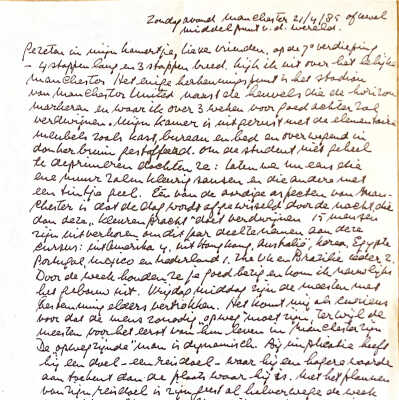 Zondagavond Manchester 21/4/85 ofwel
middelpunt v.d. wereld.
Gezeten in mijn kamertje, lieve vrienden, op de 7e verdieping
- 4 stappen lang en 3 stappen breed, kijk ik uit over het lelijke
Manchester. Het enige herkenningspunt is het stadion
van Manchester United naast de heuvels die de horizon
markeren en waar ik over 3 weken voor goed achter zal
verdwijnen. Mijn kamer is uitgerust met de elementaire
meubels zoals kast, bureau en bed en overwegend in
donkerbruin gestoffeerd. Om de student niet geheel
te deprimeren dachten ze: laten we nu eens die
ene muur zalmkleurig sausen en die andere met
een tintje geel. Eén van de aardige aspecten van Man-
chester is dat de dag wordt afgewisseld door de nacht die
dan deze "kleurenpracht" doet verdwijnen. 15 mensen
zijn uitverkoren om dit jaar deel te nemen aan deze
cursus: uit Amerika 4, uit Hong kong, Australië, Korea, Egypte
Portugal, Mexico en Nederland 1. The UK en Brazilië ieder 2.
Door de week houden ze je goed bezig en kom ik nauwelijks
het gebouw uit. Vrijdagmiddag zijn de meesten met
bestemming elders vertrokken. Het komt mij als curieus
voor dat de mens zonodig "op weg" moet zijn, terwijl de
meesten voor het eerst van hun leven in Manchester zijn.
De "op weg zijnde" man is dynamisch. Bij implicatie heeft
hij een doel - een reisdoel - waar hij een hogere waarde
aan toekent dan de plaats waar hij is. Met het plannen
van zijn reisdoel is zijn geest al halverwege de week